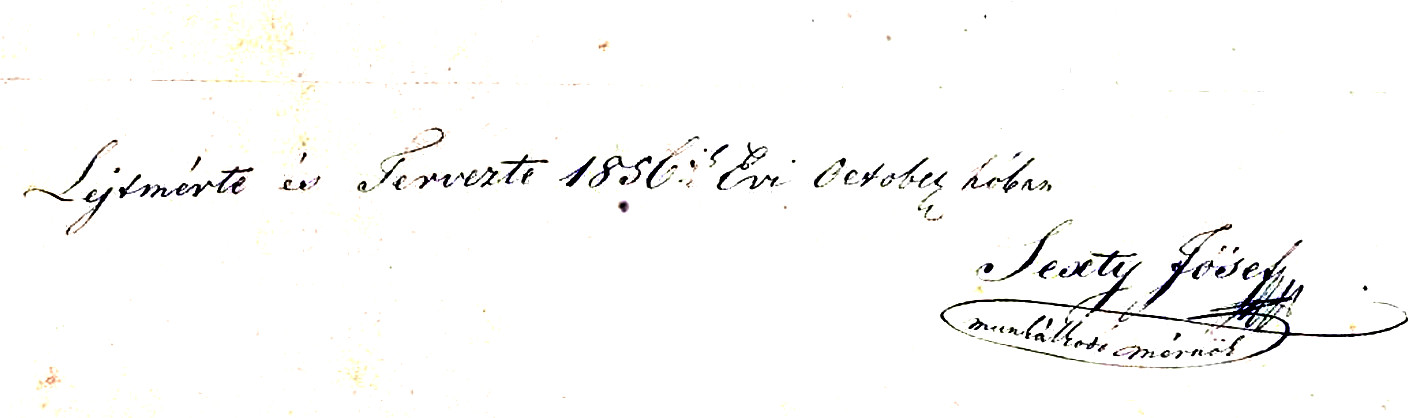 Lejtmérte és Tervezte 1856ik Évi October hóban
Sexty Jösef
munkálkodó mérnök